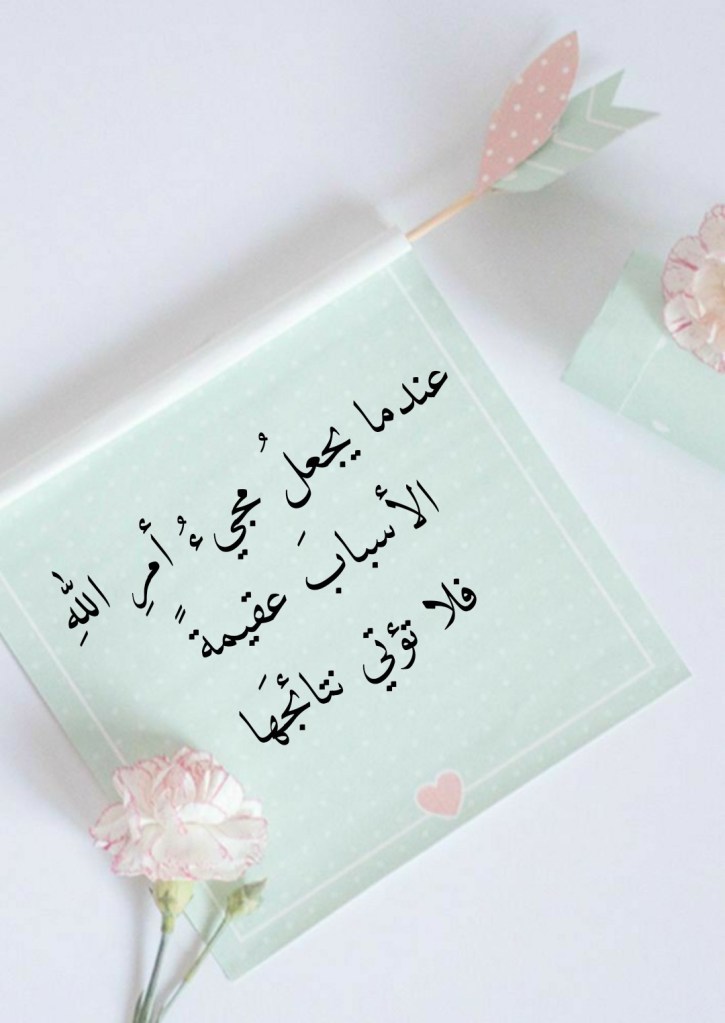 عندما يجعلُ مجيءُ أمرِ اللهِ
الأسبابَ عقيمةً
فلا تؤتي نتائجَها